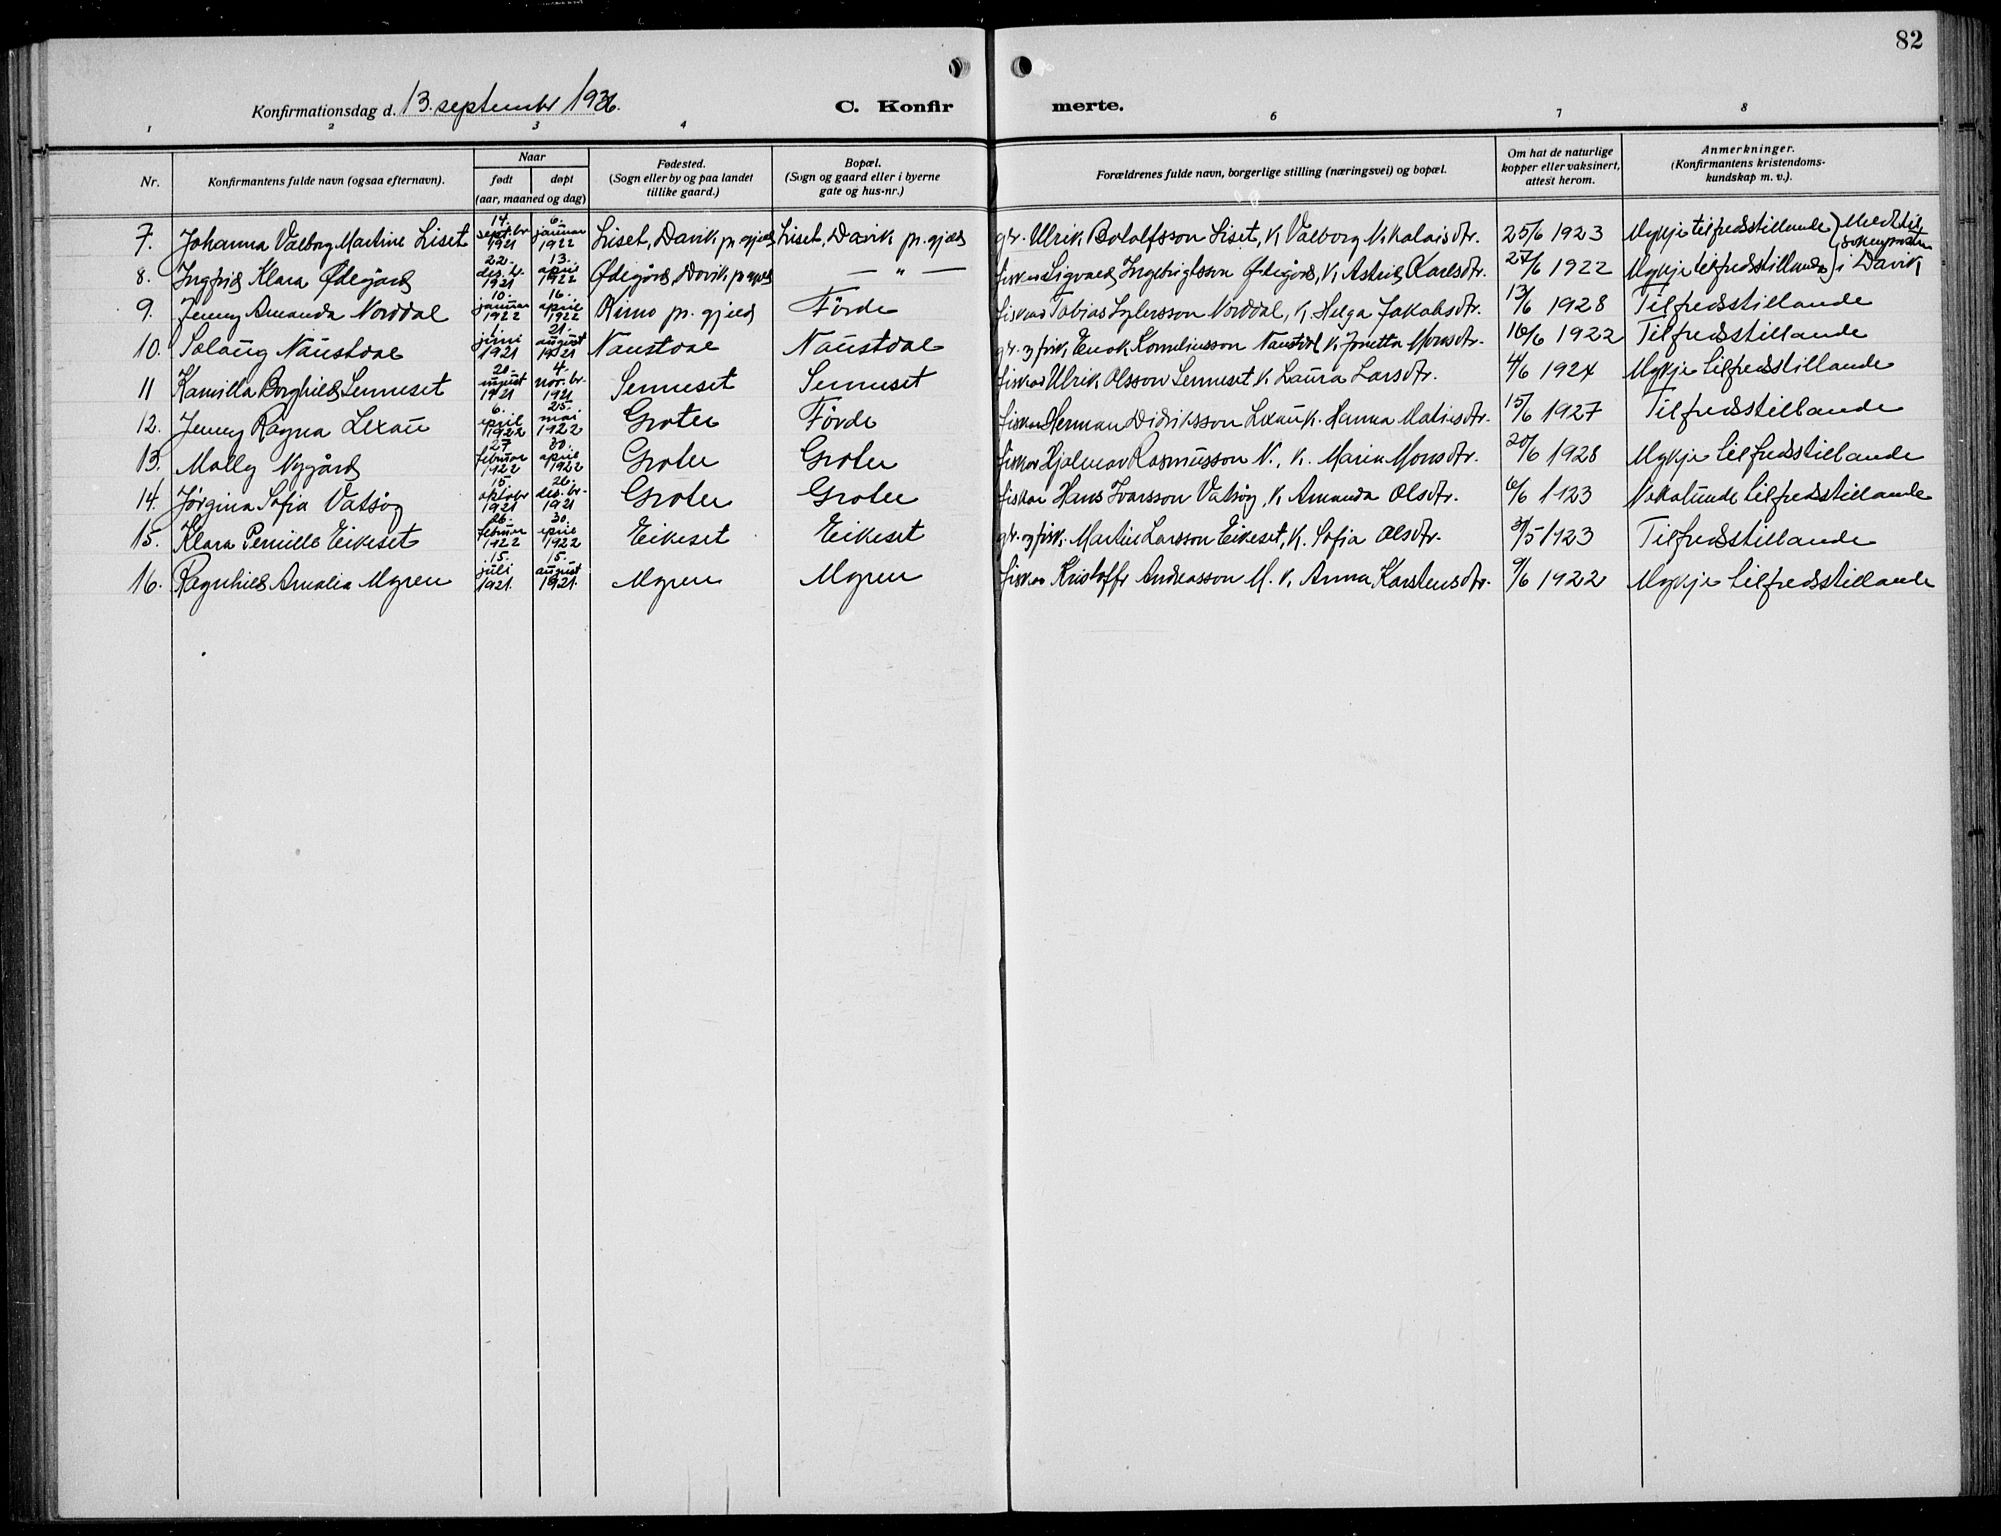 82
Konfirmationsdag d. 13. septembr 1936.
C. Konfirmerte.
1 2 3 4 6 7 8
Nr.
Konfirmantens fulde navn (ogsaa efternavn).
Naar
født døpt
(aar, maaned og dag)
Fødested.
(Sogn eller by og paa landet
tillike gaard.)
Bopæl.
(Sogn og gaard eller i byerne
gate og hus-nr.)
Forældrenes fulde navn, borgerlige stilling (næringsvei) og bopæl.
Om hat de naturlige
kopper eller vaksinert,
attest herom.
Anmerkninger.
(Konfirmantens kristendoms-
kundskap m. v.).
7. Johanna Valborg Martine Liset 14. sept.br 1921 6. januar 1922 Liset, Davik pr.gjeld Liset, Davik pr.gjeld gr. Ulrik Botolfsson Liset, K. Valborg Nikolaisdtr. 25/6 1923 Mykje tilfredsstillande } Meldt til soknepresten i Davik
8. Ingfrid Klara Ødegård 22. des.br. 1921 13. april 1922 Ødegård, Davik pr.gjeld — " — fiskar Sigvald Ingebrigtsson Ødegård, K. Astrid Karlsdtr. 27/6 1922 Mykje tilfredsstillande
9. Jenny Amanda Norddal 10. januar 1922 16. april 1922 Kinn pr. gjeld Förde fiskar Tobias Norddal, K. Helga Jakobsdtr. 13/6 1928 Tilfredsstillande
10. Solaug Naustdal 1. juni 1921 21. august 1921 Naustdal Naustdal gr. og fisk. Enok Korneliusson Naustdal K. Jonetta Monsdtr. 10/6 1922 Tilfredsstillande
11 Kamilla Borghild Senneset 20. august 1921 4. nov.br. 1921 Senneset Senneset fiskar Ulrik Olsson Senneset K. Laura Larsdtr. 4/6 1924 Mykje tilfredsstillande
12. Jenny Ragna Lexau 6. april 1922 25. mai 1922 Grotle Förde fiskar Herman Didriksson Lexau K. Hanna Matiasdtr. 15/6 1927 Tilfredsstillande
13. Molly Nygård 27 februar 1922 30. april 1922 Grotle Grotle fiskar Hjalmar Rasmusson N., K. Marie Monsdtr. 20/6 1928 Mykje tilfredsstillande
14. Jørgina Sofia Vatsög 15 oktobr 1921 26. des.br. 1921 Grotle Grotle fiskar Hans Ivarsson Vatsög, K. Amanda Olsdtr. /6 1923 Nokolunde tilfredsstillande
15. Klara Pernille Eikeset 26. februar 1922 30. april 1922 Eikeset Eikeset gr. og fisk. Martin Larsson Eikeset, K. Sofia Olsdtr. 31/5 1923 Tilfredsstillande
16. Ragnhild Amalia Myren 15. juli 1921. 15. august 1921. Myren Myren fiskar Kristoffr Andreasson M. K. Anna Karstensdtr. 9/6 1922 Mykje tilfredsstillande